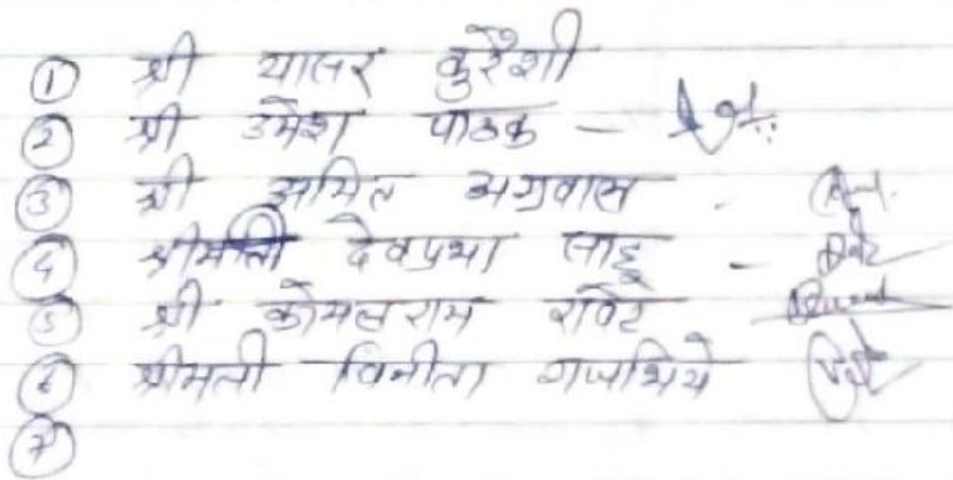 ① श्री यासर कुरैशी
② श्री उमेश पाठक -
③ श्री अमित अग्रवाल -
④ श्रीमती देवप्रभा साहू -
⑤ श्री कोमल राम
⑥ श्रीमती विनीता गजभिये
⑦